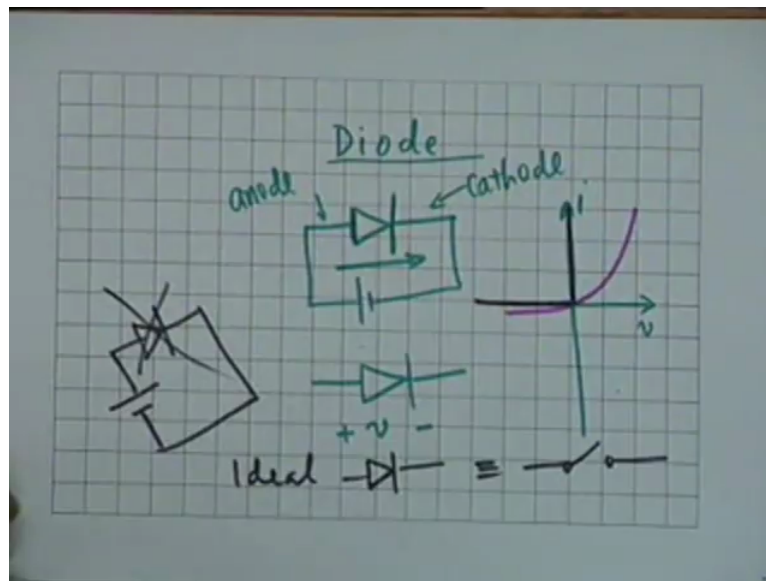 Diode
anode
Cathode
i
v
+ v -
Ideal ≡